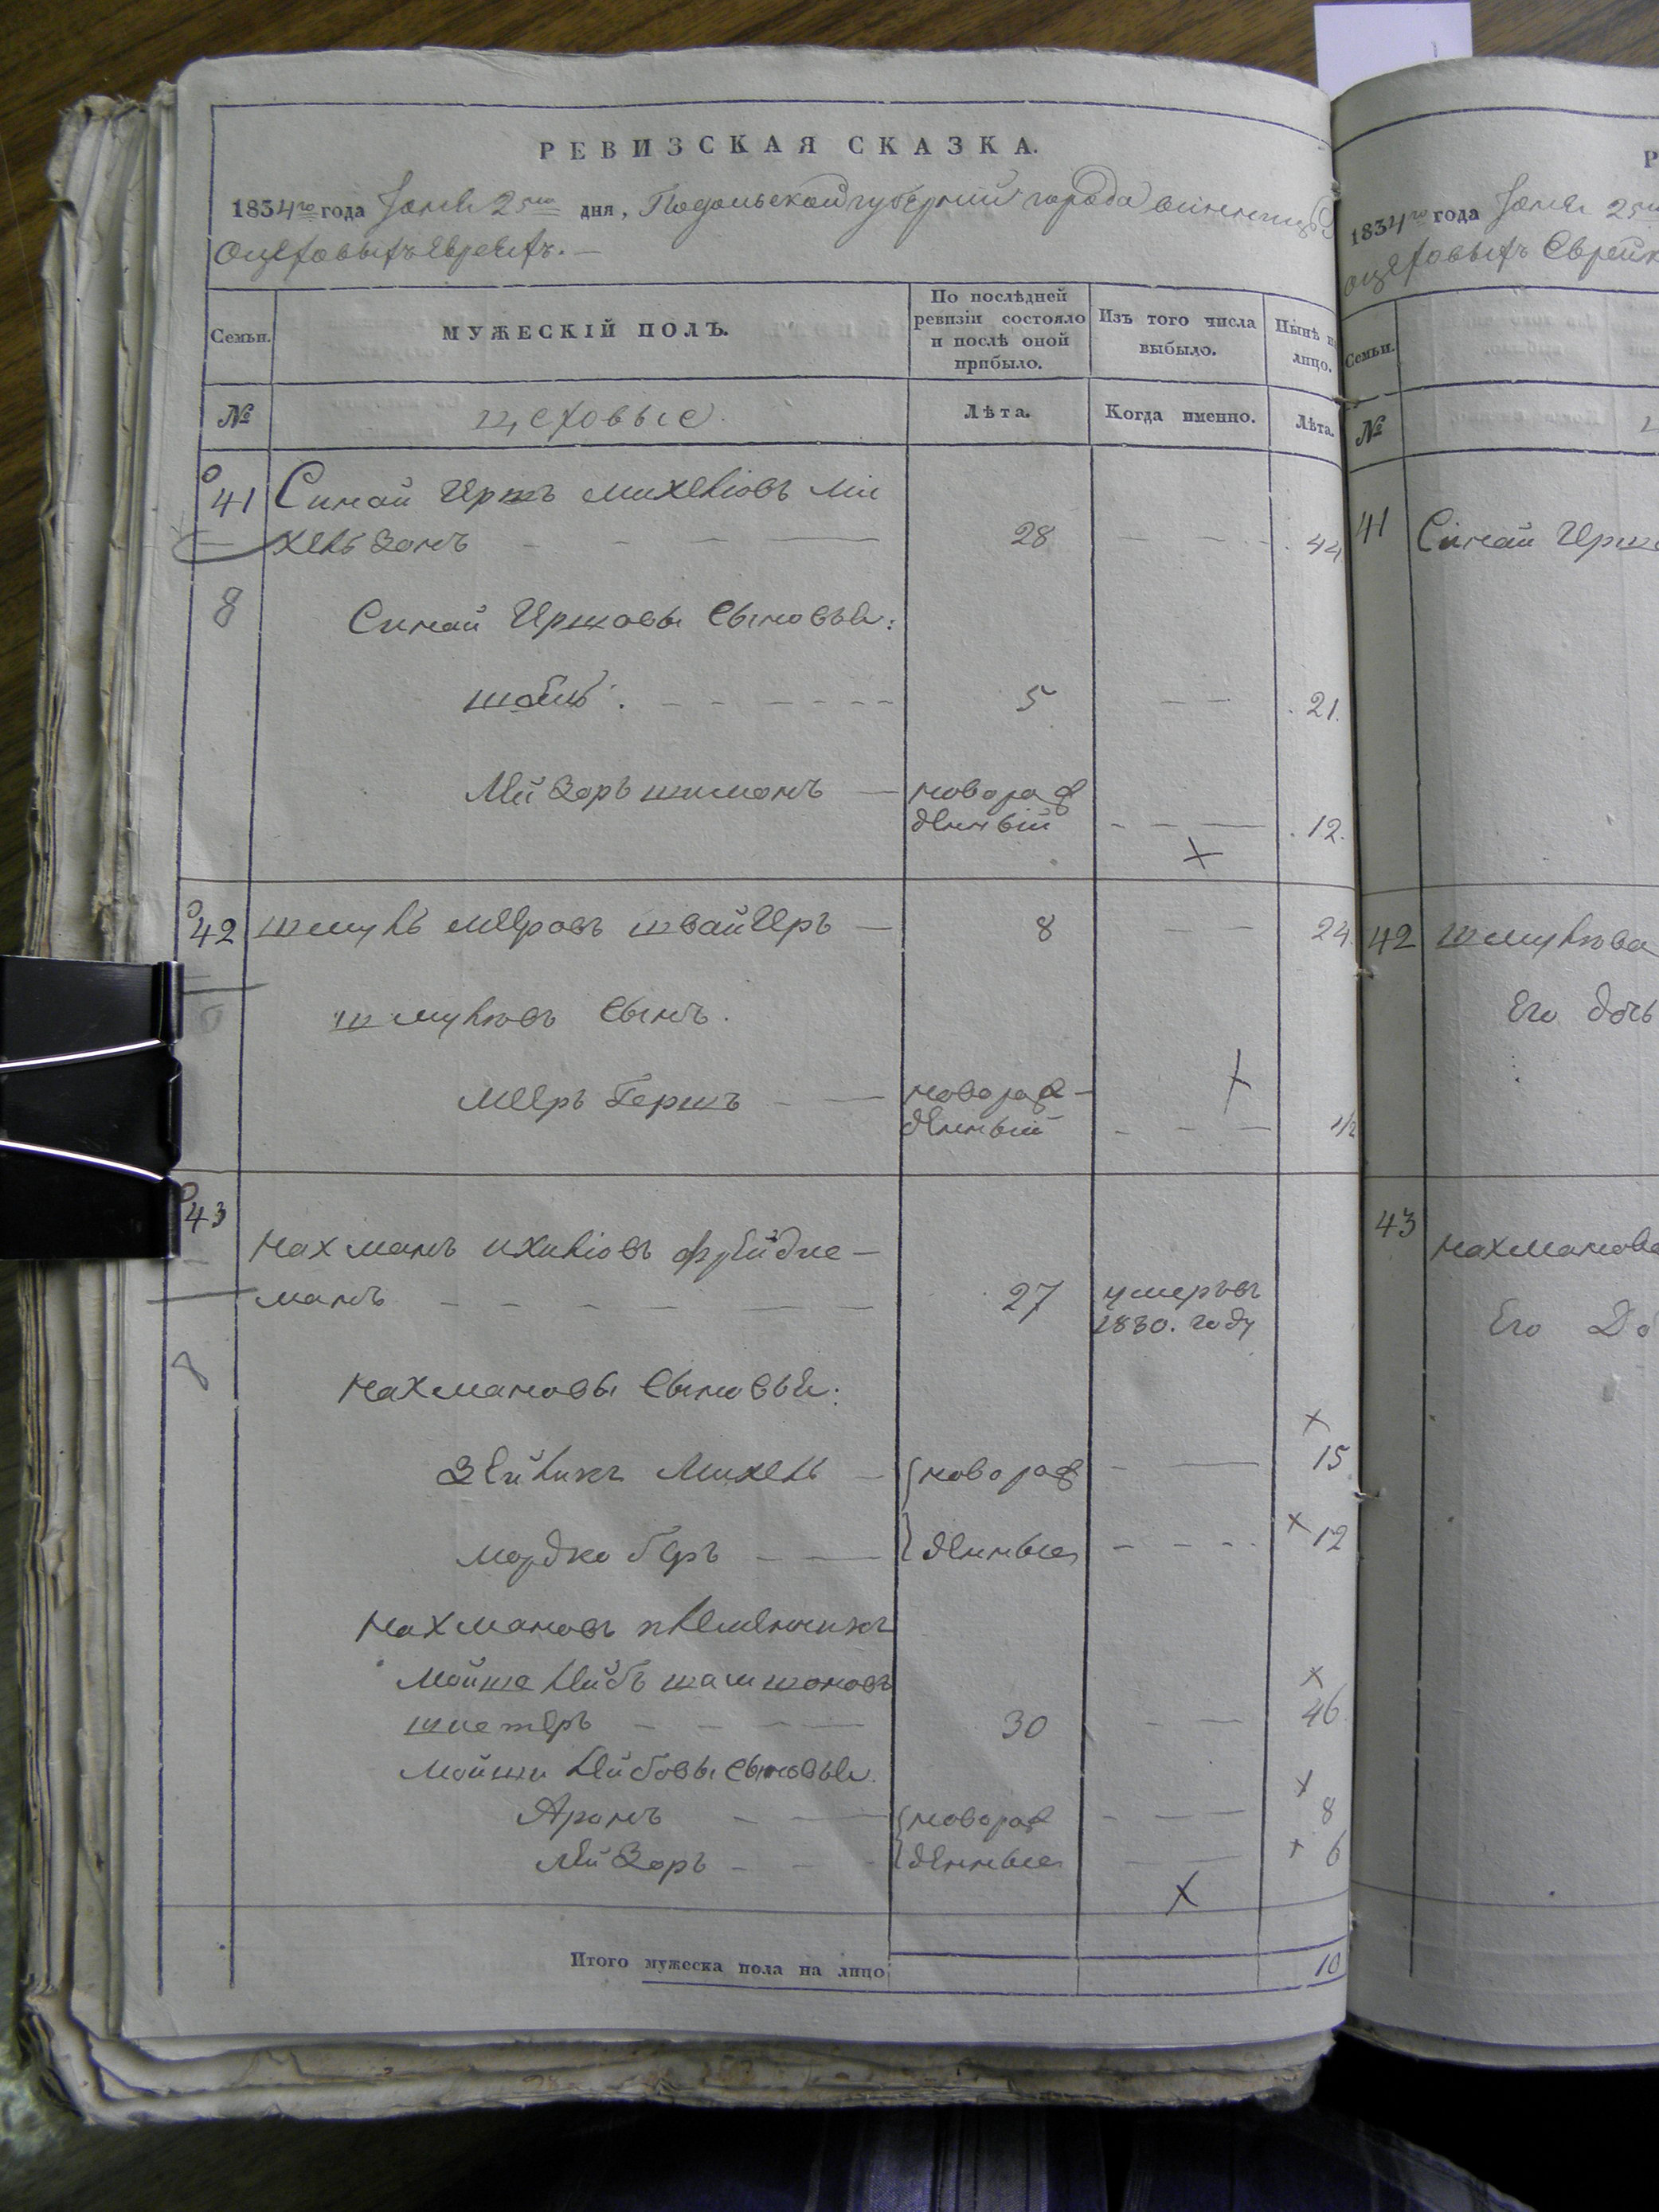 РЕВИЗСКАЯ СКАЗКА.
1834го года Іюня 25го дня, Подольской губерніи города Винницы
О цеховыхъ Евреяхъ.
Семьи.
МУЖЕСКІЙ ПОЛЪ.
По послѣдней ревизіи состояло и послѣ оной прибыло.
Изъ того числа выбыло.
Нынѣ н
лицо.
№
цеховые.
Лѣта.
Когда именно.
Лѣта.
41 Синай Иршъ михелiовъ ми
хельзонъ 28 44
8
Синай Иршовы сыновья:
5 21.
Лейзоръ шимонъ новорож
денный 12.
42 шмуль мееровъ швайгеръ 8 24
шмулювъ сынъ.
мееръ Гершъ новорож-
денный 1/2
43
нахманъ ихилiовъ фрейдне-
манъ 27 умеръ въ
1830. году
8
нахмановы сыновья:
Зейликъ Михель новорож 15
мордко беръ денные 12
нахмановъ племенникъ
мойше лейбъ шамшоновъ
30 46
мойши лейбовы сыновья.
Аронъ новорож 8
лейзоръ денные 6
Итого мужеска пола на лицо 10
Р
1834го года Іюня 25
цеховыхъ Еврейк
Семьи.
№
41 Синай Ирш
42 шмулюва
Его дочь
43
нахманова
Его До